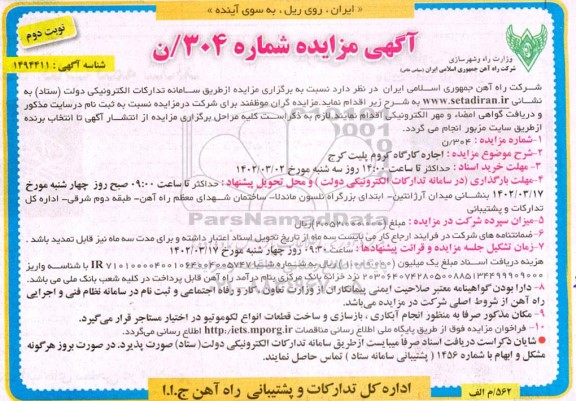 « ایران ، روی ریل ، به سوی آینده »
نوبت دوم
آگهی مزایده شماره ۳۰۴/ن
شناسه آگهی : ۱۴۹۴۴۱۱
وزارت راه وشهرسازی
شرکت راه آهن جمهوری اسلامی ایران (سهامی خاص)
شرکت راه آهن جمهوری اسلامی ایران در نظر دارد نسبت به برگزاری مزایده ازطریق سامانه تدارکات الکترونیکی دولت (ستاد) به
نشانی www.setadiran.ir به شرح زیر اقدام نماید.مزایده گران موظفند برای شرکت درمزایده نسبت به ثبت نام درسایت مذکور
و دریافت گواهی امضاء و مهر الکترونیکی اقدام نمایند.لازم به ذکراست کلیه مراحل برگزاری مزایده از انتشار آگهی تا انتخاب برنده
ازطریق سایت مزبور انجام می گردد.
۱-شماره مزایده : ۳۰۴/ن
۲-شرح موضوع مزایده : اجاره کارگاه کروم پلیت کرج
۳- مهلت خرید اسناد : حداکثر تا ساعت ۱۴:۰۰ روز سه شنبه مورخ ۱۴۰۲/۰۳/۰۲
۴-مهلت بارگذاری (در سامانه تدارکات الکترونیکی دولت ) و محل تحویل پیشنهاد : حداکثر تا ساعت ۰۹:۰۰ صبح روز چهار شنبه مورخ
۱۴۰۲/۰۳/۱۷ بنشانی میدان آرژانتین- ابتدای بزرگراه نلسون ماندلا- ساختمان شهدای معظم راه آهن- طبقه دوم شرقی- اداره کل
تدارکات و پشتیبانی
۵-میزان سپرده شرکت در مزایده : مبلغ ریال
۶- ضمانتنامه های شرکت در فرایند ارجاع کار می بایست سه ماه از تاریخ تحویل اسناد اعتبار داشته و برای مدت سه ماه نیز قابل تمدید باشد .
۷- زمان تشکیل جلسه مزایده و قرائت پیشنهادها : ساعت ۰۹:۳۰ روز چهار شنبه مورخ ۱۴۰۲/۰۳/۱۷
هزینه دریافت اسناد مبلغ یک میلیون ریال به شماره شبا IR با شناسه واریز
نزد خزانه بانک مرکزی بنام درآمد راه آهن قابل پرداخت در کلیه شعب بانک ملی می باشد.
۸- دارا بودن گواهینامه معتبر صلاحیت ایمنی پیمانکاری از وزارت تعاون کار و رفاه اجتماعی و ثبت نام در سامانه نظام فنی و اجرایی
راه آهن از شروط اصلی شرکت در مزایده می‌باشد.
۹- مکان مذکور صرفا به منظور انجام آبکاری ، بازسازی و ساخت قطعات انواع لکوموتیو در اختیار مستاجر قرار می‌گیرد.
۱۰- فراخوان مزایده فوق از طریق پایگاه ملی اطلاع رسانی مناقصات http://iets.mporg.ir اطلاع رسانی می‌گردد.
شایان ذکراست دریافت اسناد صرفاً میبایست ازطریق سامانه تدارکات الکترونیکی دولت(ستاد) صورت پذیرد. در صورت بروز هرگونه
مشکل و ابهام با شماره ۱۴۵۶ ( پشتیبانی سامانه ستاد ) تماس حاصل نمایند.
اداره کل تدارکات و پشتیبانی راه آهن ج.ا.ا
۵۶۲/م الف